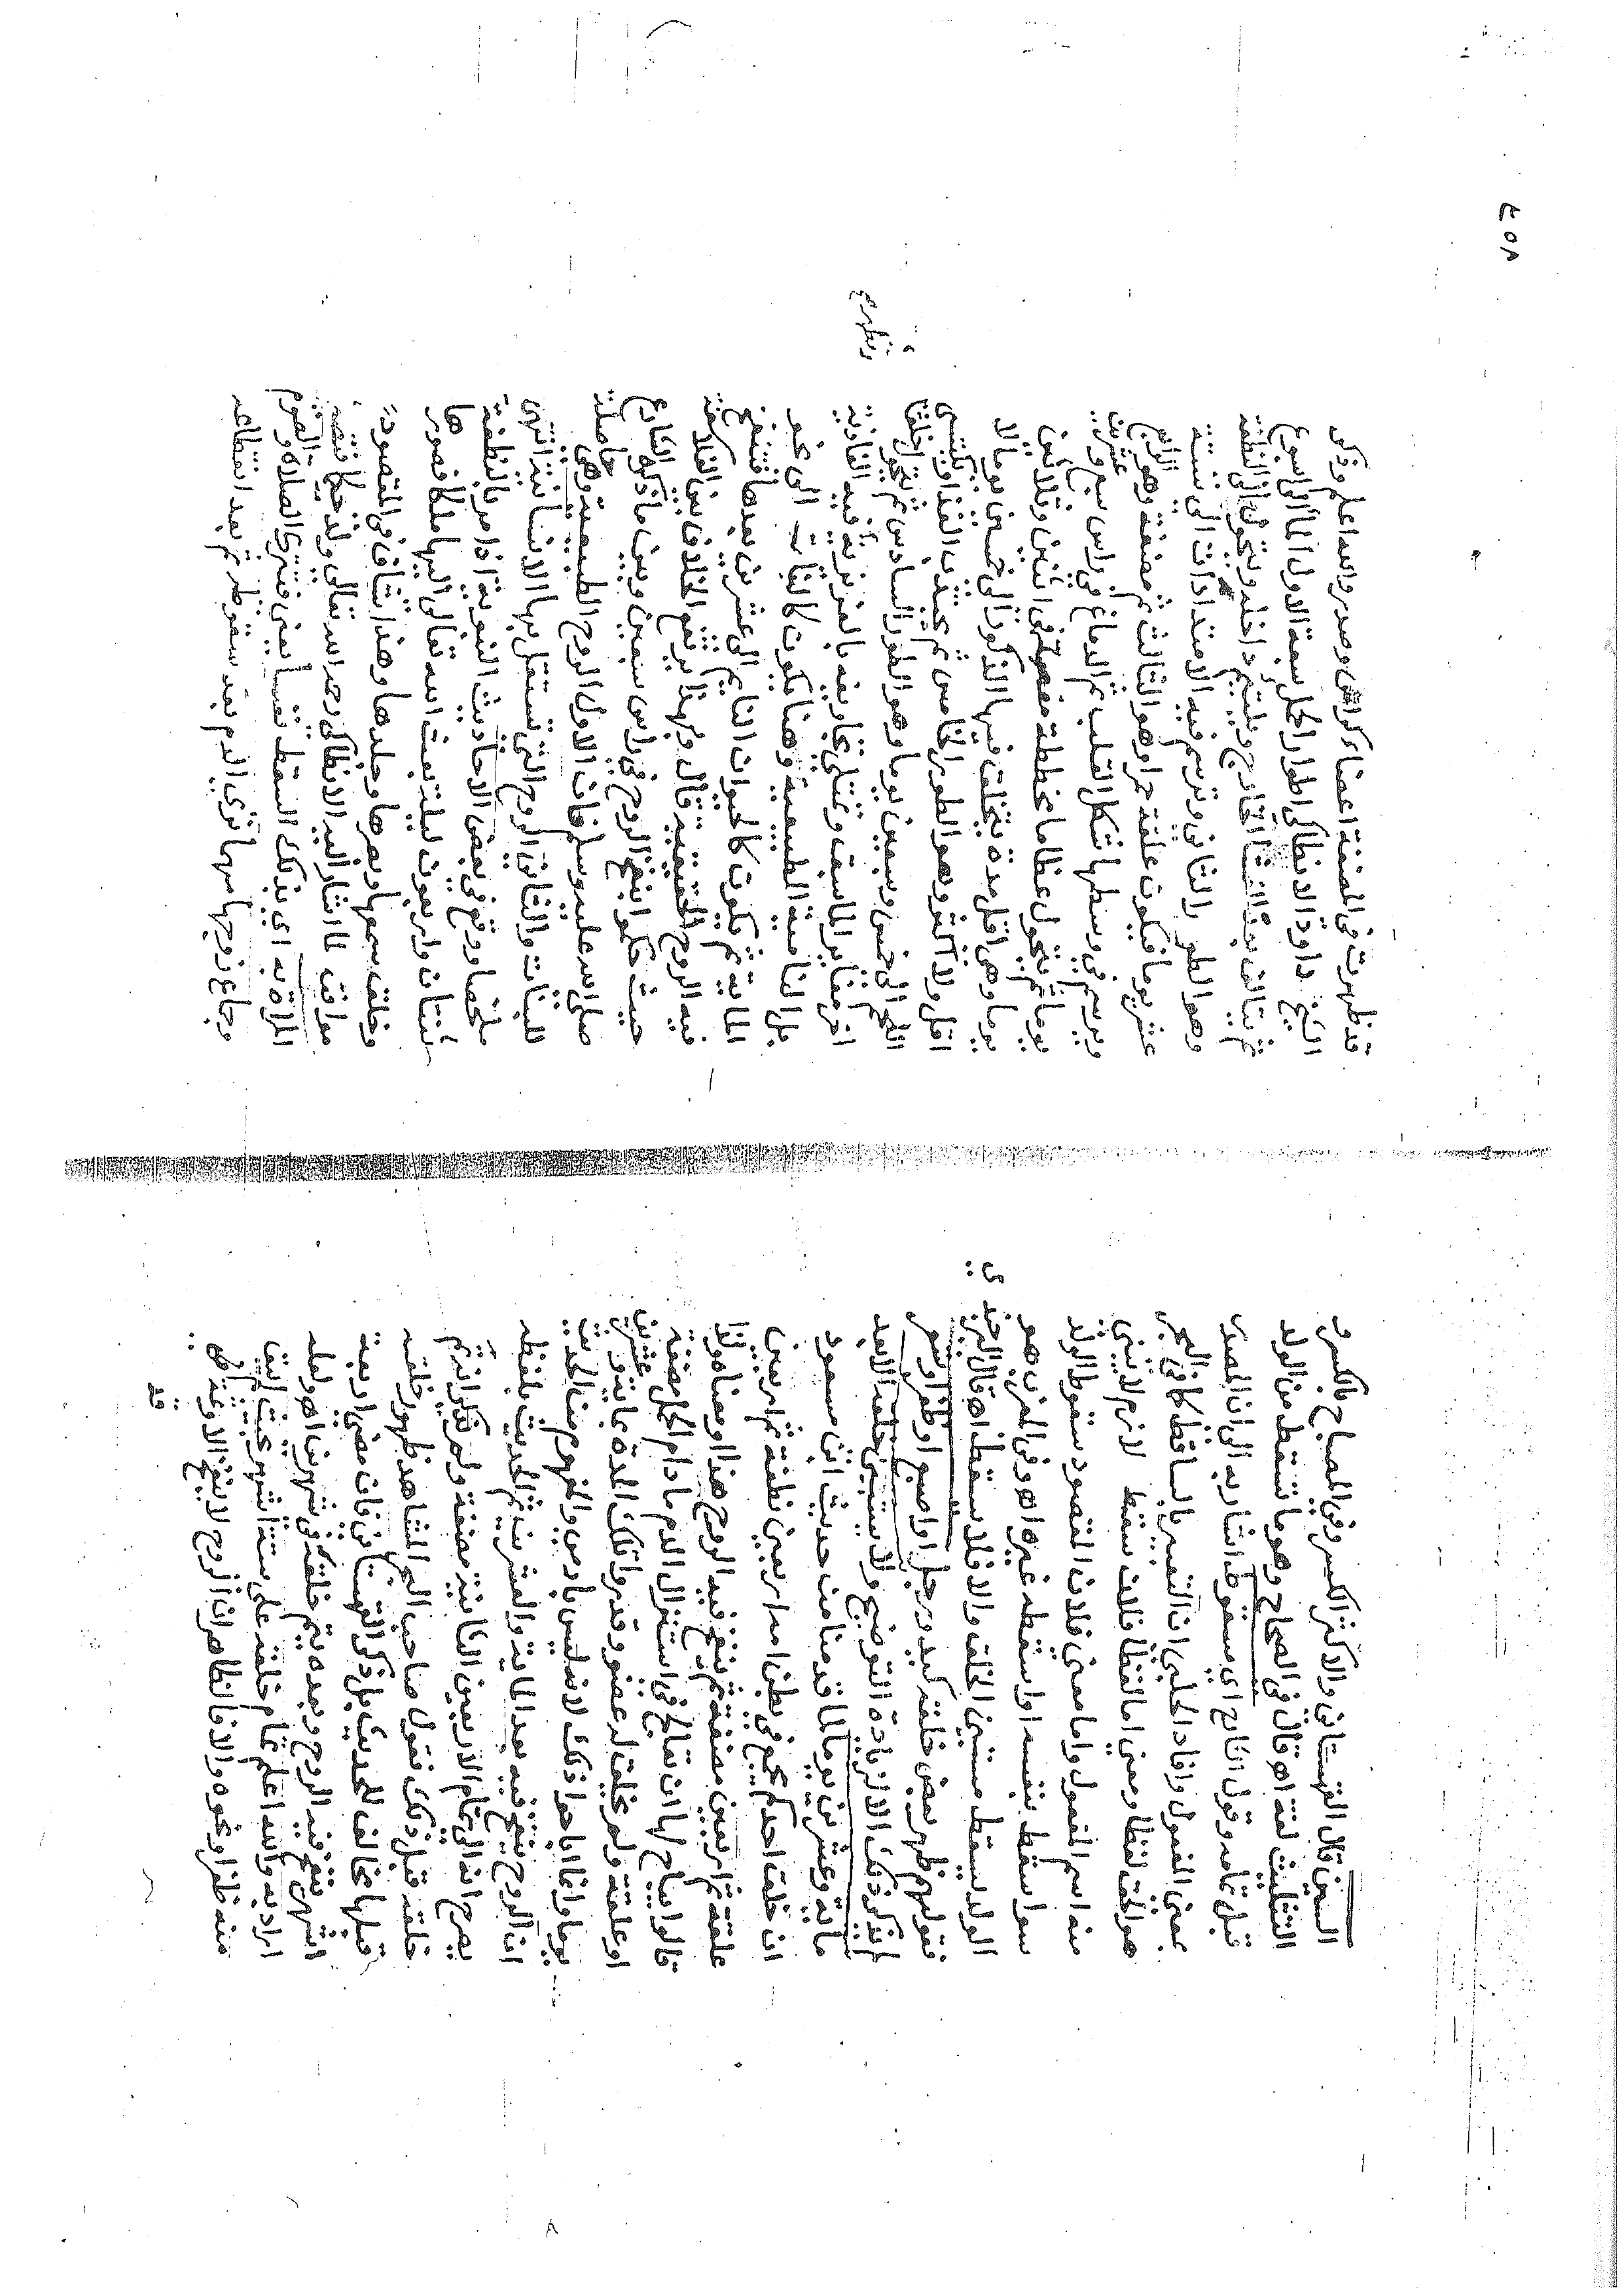 السين قال القهستاني والاكثر الكسر وفي المصباح بالكسر و
التثليث لغة اهـ قال في الصحاح وهو ما تسقط من الولد
قبل تمامه وقول الشارح اي يسقوط اشار به الى ان المصدر
بمعنى المفعول وافاد الحلبي ان التعبير بالساقط كما في البحر
هو الحق لفظا ومعنى اما لفظا فلان سقط لازم لا يبنى
منه اسم المفعول واما معنى فلان المقصود سقوط الولد
سوا سقط بنفسه او اسقطه غيره اهـ وفي المغرب هو
الولد يسقط مستبين الخلق والا فلا يسقط اهـ قال البرجندي
فقولهم ظهر بعض خلقه كيد ورجل او اصبع او ظفر او شعر
لم يذكر ذلك الا لزيادة التوضيح ولا يستبين خلقه الا بعد
ماية وعشرين يوما لما قدمنا من حديث ابن مسعود
ان خلق احدكم يجمع في بطن امه اربعين نطفة ثم اربعين
علقة ثم اربعين مضغة ثم ينفخ فيه الروح هذا او معناه ولذا
قالوا يباح لها ان تعالج في استنزال الدم ما دام الحمل مضغة
او علقة ولم يخلق له عضو وقدروا تلك المدة بماية وعشرين
يوما وانما اباحوا ذلك لانه ليس بادمي والمفهوم من الحديث
ان الروح ينفخ فيه بعد الماية والعشرين ثم الحديث بلفظه
يصرح انه الى تمام الاربعين الثانية مضغة ولم يذكر انه تم
خلقه قبل ذلك فقول صاحب البحر المشاهد ظهور خلقه
قبلها مخالف للحديث بل ذكر القهستاني فان مضى اربعة
اشهر ينفخ فيه الروح وبعده يتم خلقه في شهرين اهـ ولعله
اراد به والله اعلم تمام خلقه على ستة اشهر بحيث ينبت
منه ظفر او نحوه والا فالظاهر ان الروح لا ينفخ الا
قد
٤٥٨
قد ظهرت في المضغة اعضاء كراس وصدر والله اعلم وذكر
الشيخ داود الانطاكي اطوار الحمل سبعة الاول الماء الى اسبوع
ثم يتالف بعد الغشا الخارج ويلتئم داخله ويتحول الى النطفة
وهو الطور الثاني وترسم فيه الامتدادات الى ستة
عشر يوما فيكون علقة حمرا وهو الثالث ثم مضغة وهو الرابع
ويرسم في وسطها شكل القلب ثم الدماغ في راس سبع وعشرين
يوما ثم يتحول عظاما مخططة مفصولة في اثنين وثلاثين
يوما وهي اقل مدة يتخلق فيها الذكور الى خمسين يوما لا
اقل ولا اكثر وهو الطور الخامس ثم يجتذب الغذا ويكتسي
اللحم الى خمس وسبعين يوما وهو الطور السادس ثم يتحول خلقا
اخر مغايرا لما سبق وتمتلي تجاويفه بالغريزية وتظهر فيه الغاذية
بل النامية الطبيعية وهنا يكون كالنبات الى نحو
الماية ثم يكون كالحيوان النايم الى عشرين بعدها فتنفخ
فيه الروح الحقيقية قال وبهذا يرتفع الخلاف بين الفلاسفة
حيث حكموا بنفخ الروح في راس سبعين وبين ما ذكره الشارع
صلى الله عليه وسلم فان الاول الروح الطبيعية وهي حاصلة
للنبات والثاني الروح التي تستقل بها الانسانية انتهى
ملخصا ووقع في بعض الاحاديث النبوية اذا مر بالنطفة
ثنتان واربعون ليلة بعث الله تعالى اليها ملكا فصورها
وخلق سمعها وبصرها وجلدها وهذا والمقصود
موافق لما اشار اليه الانطاكي رحمه الله تعالى
المراة به اي بذلك السقط نفسا يعني فتترك الصلاة والصوم
وجماع زوجها مهما تري الدم بعد سقوطه ثم بعد انقطاعه